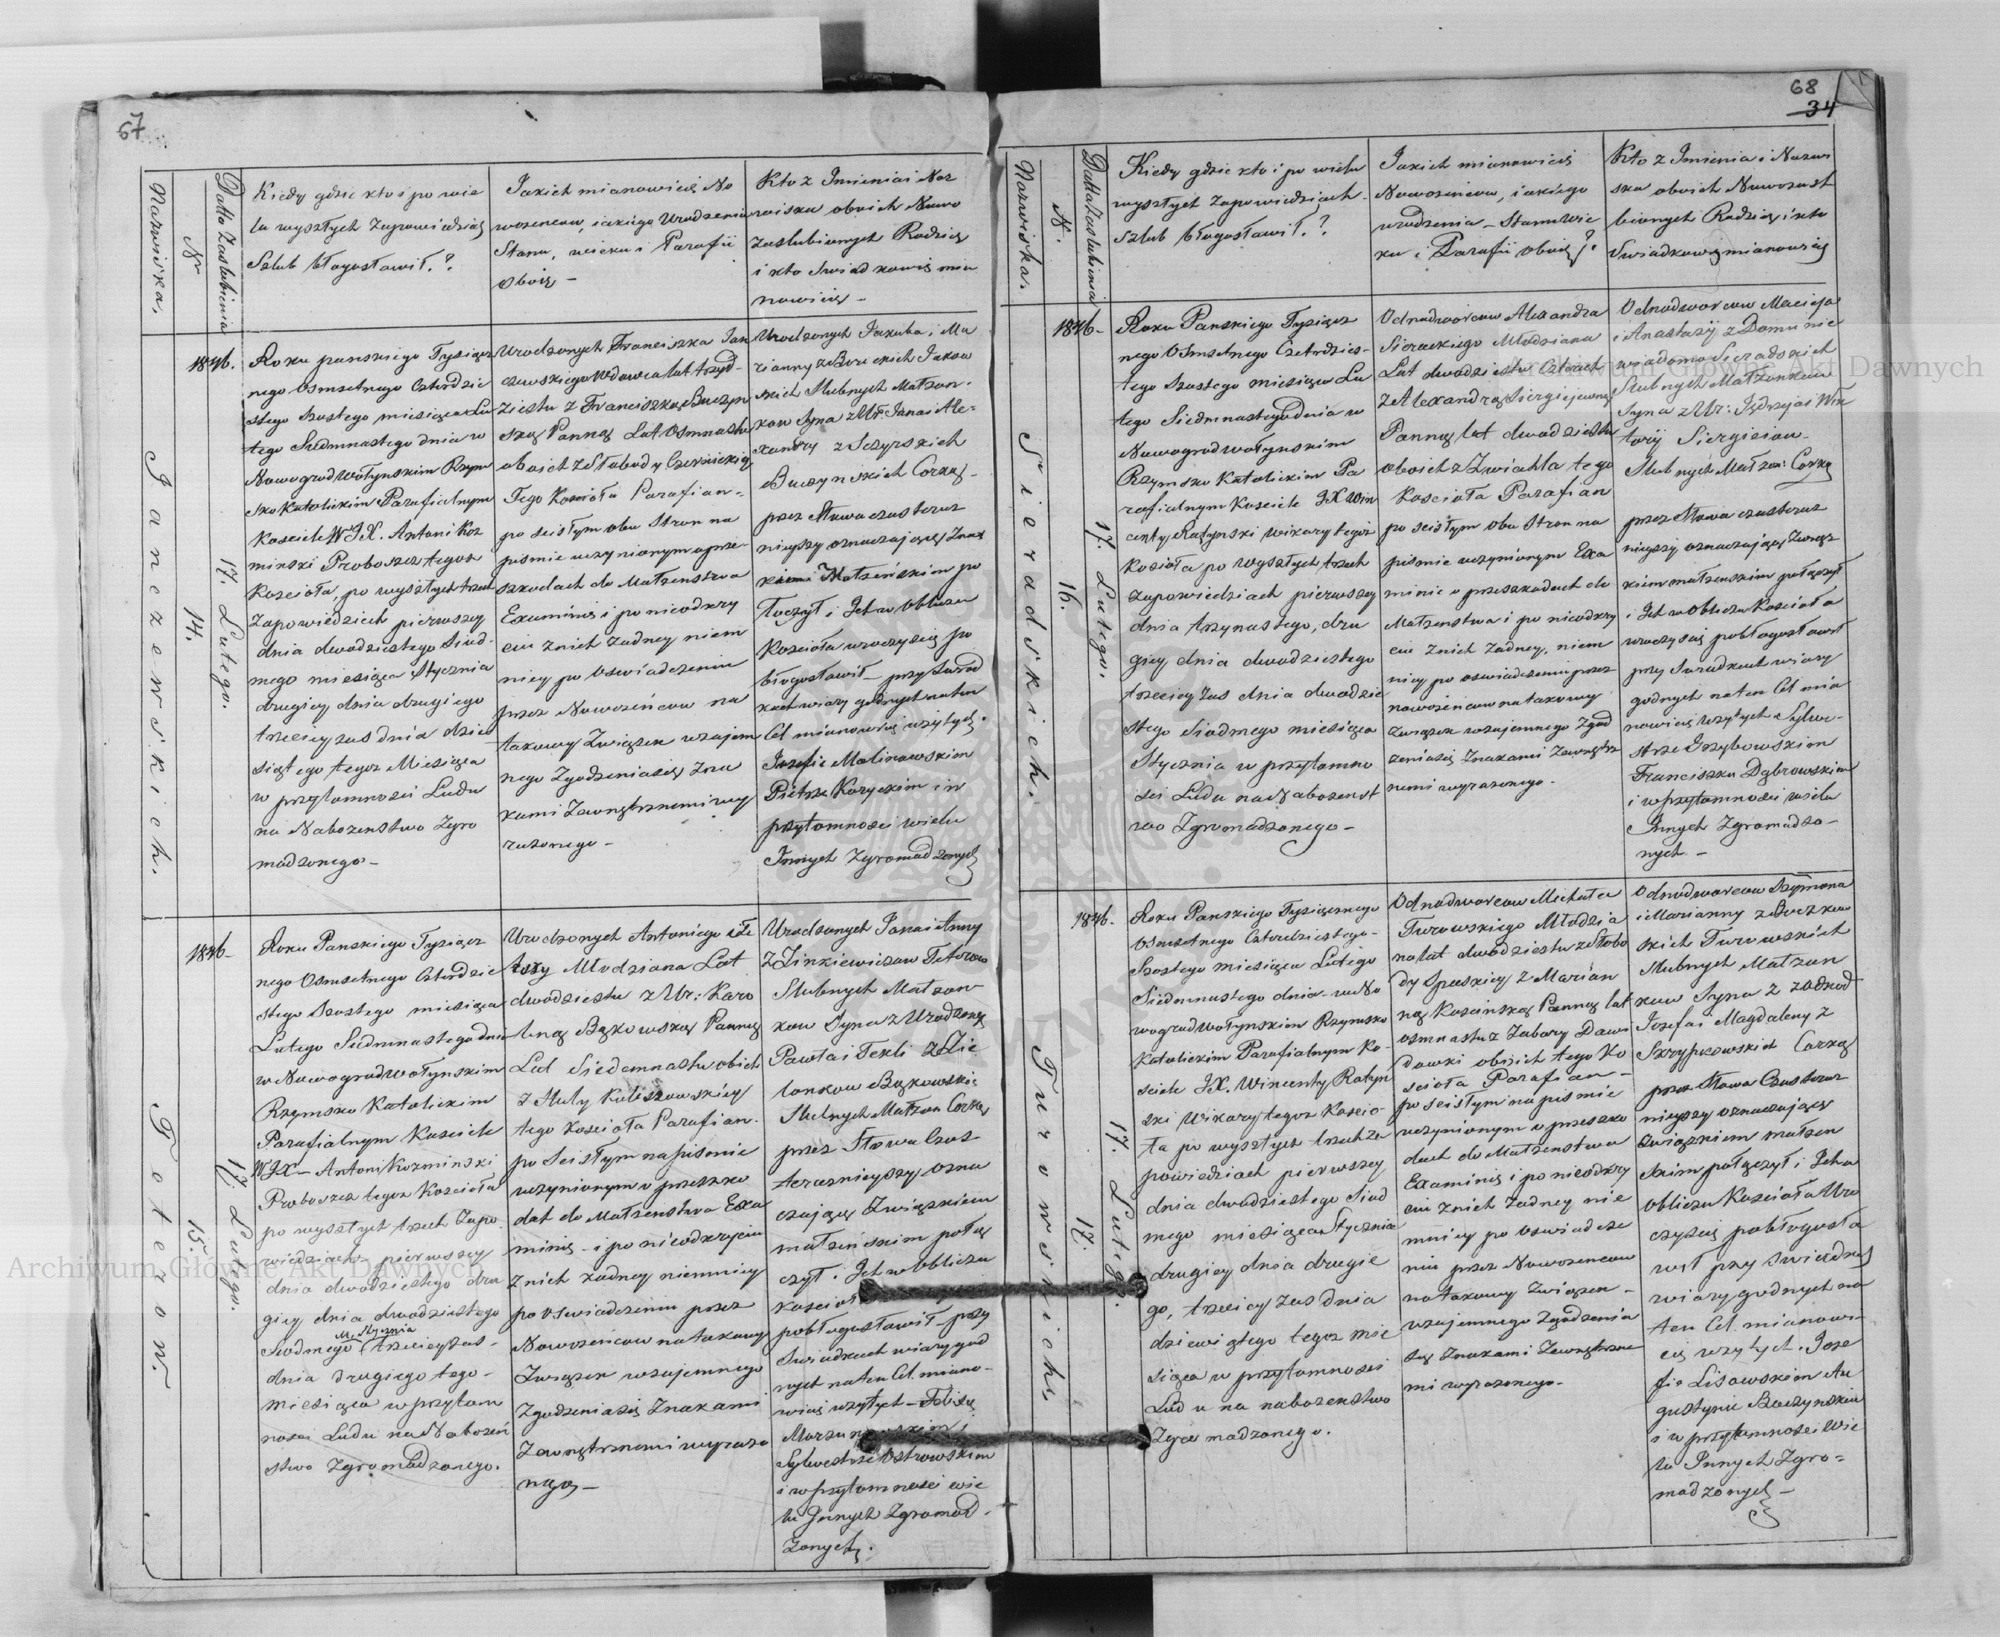 67
Nazwiska.
Nr
Datta Zaslubienia
Kiedy gdzie kto i po wie
lu wyszłych Zapowiedziach
Szlub błogosławił.?
Jakich mianowicie No
wozencow, iakiego Urodzenia
Stanu, wieku i Parafii
oboie –
Kto z Imienia i Naz
wiska oboich Nowo
Zaslubionych Rodzice
i kto Swiadkowie mia
nowicie –
Janczewskich.
14.
17. Lutego.
1846.
Roku panskiego Tysiącz
nego Osmsetnego Czterdzie
stego Szostego miesiąca Lu
tego Siedmnastego dnia w
Nowogrodwołynskim Rzym
sko Katolickim Parafialnym
Kosciele WJX. Antoni Koz
minski Proboszcz tegoz
Kosciola, po wyszłych trzech
Zapowiedziach pierwszey
dnia dwodziestego Siud-
mego miesiąca Stycznia
drugiey dnia drugiego
trzeciey zas dnia dzie
siątego tegoz Miesiąca
w przytomnosci Ludu
na Nabozenstwo Zgro
madzonego –
Urodzonych Franciszka Jan
czewskiego Wdowca lat trzyd-
ziestu z Franciszką Buczyn
ską Panną Lat Osmnastu
oboich z Słobody Czernickiey
Tego Kosciola Parafian –
po scisłym obu Stron na
pismie uczynionym o prze
szkodach do Małzenstwa
Examinie i po nieodkry
ciu znich zadney niem
niey po Oswiadczeniu
przez Nowozeńcow na
takowy Związek wzajem
nego Zgodzenia się Zna
kami Zewnętrznemi wy
razonego –
Urodzonych Jakuba i Ma
rianny z Boruckich Jancze
wskich Slubnych Małzon.
kow Syna z Ur: Jana i Ale-
xandry z Sczyrskich
Buczynskich Corką –
przez Słowa czas teraz
nieyszy oznaczaiące Zwią
zkiem Małzeńskim po
łączył i Ich w Obliczu
Kosciola uroczyscie po
błogosławił – przy Swiad
kach wiary godnych na ten
Cel mianowicie uzytych.
Jozefie Malinowskim
Pietrze Koryckim i w
przytomnosci wielu
Innych Zgromadzonych
Teterow.
15.
17. Lutego.
1846 –
Roku Panskiego Tysiącz
nego Osmsetnego Czterdzie
stego Szostego miesiąca
Lutego Siedmnastego dnia
w Nowogrodwołynskim
Rzymsko Katolickim
Parafialnym Kosciele
WJX – Antoni Kozminski
Proboszcz tegoz Kosciola
po wyszłych trzech Zapo
wiedziach pierwszey
dnia dwodziestego dru
giey dnia dwodziestego
M. Stycznia
Siodmego trzeciey zas –
dnia drugiego tego –
miesiąca w przytom
nosci Ludu na Nabozeń
stwo Zgromadzonego.
Urodzonych Antoniego Te
tery Młodziana Lat
dwodziestu z Ur: Karo
liną Bąkowską Panną
Lat Siedemnastu obich
z Huly Kuliszowskiey
tego Kosciola Parafian.
po Scisłym na pismie
uczynionym o przeszko
dat do Małzenstwa Exa
minie – i po nieodkryciu
Znich zadney niemniey
po oswiadczeniu przez
Nowozeńcow na takowy
Związek wzajemnego
Zgodzenia się Znakami
Zewnętrznemi wyrazo
nego –
Urodzonych Jana i Anny
z Zinkiewiczow Teterow
Slubnych Małzon-
kow Syna z Urodzoną
Pawła i Tekli z Zie
lonkow Bąkowskich
Slubnych Małzon Corką
przez Słowa Czas
teraznieyszy, ozna
czaiące Związkiem
małzeńskim połą
czył. Ich w obliczu
Kosciola
pobłogosławił – przy
Swiadkach wiary god
nych na ten Cel miano-
wicie uzytych – Felixie
Sylwestrze Ostrowskim
i w przytomnosci wie
lu Innych Zgromad.
Zonych.
68
34
Nazwiska.
N.
Datta Zaslubienia
Kiedy gdzie kto i po wielu
wyszłych zapowiedziach
Szlub błogosławił.?
Jakich mianowicie
Nowozencow, iakiego
urodzenia – Stanu Wie
ku i Parafii oboie?
Kto z Imienia i Nazwi
ska oboich Nowozasl
bionych Rodzice i kto
Swiadkowie mianowicie
Sieradskich.
16.
17. Lutego.
1846 –
Roku Panskiego Tysiącz
nego Osmsetnego Czterdzies-
tego Szostego miesiąca Lu
tego Siedmnastego dnia w
Nowogrodwołynskim
Rzymsko Katolickim Pa
rafialnym Kosciele JX Win
centy Ratynski wikary tegoz
Kosciola po wyszłych trzech
zapowiedziach pierwszey
dnia trzynastego, dru
giey dnia dwodziestego
trzeciey zas dnia dwodzie
stego Siodmego miesiąca
Stycznia w przytomno
sci Ludu na Nabozenst
wo Zgromadzonego –
Odnodworcow Alexandra
Sieradzkiego Młodziana
Lat dwodziestu Czterech
Z Alexandrą Siergiejewną
Panną lat dwodziestu
oboich z Zwiahla tego
Kosciola Parafian
po scisłym obu Stron na
pismie uczynionym Exa
minie o przeszkodach do
Małzenstwa i po nieodkry
ciu Znich Zadney, niem
niey po oswiadczeniu przez
nowozeńcow na takowy
Związek wzajemnego Zgod
zenia się Znakami Zewnętrz
nemi wyrazonego –
Odnodworcow Macieja
i Anastazij z Domu nie
wiadomo Sieradskich
Slubnych Małzonkow
Syna z Ur: Jędrzeja i Wik
torij Siergieiow –
Slubnych Małzon: Corką
przez Słowa czas teraz
nieyszy oznaczaiące Związ
kiem małzenskim połączył
i Ich w Obliczu Kosciola
uroczyscie pobłogosławił
przy Swiadkach wiary
godnych na ten Cel mia
nowicie uzytych Sylwe-
strze Grzybowskim
Franciszku Dąbrowskim
i w przytomnosci wielu
Innych Zgromadzo –
nych –
Turowskich
17.
17. Lutego.
1846.
Roku Panskiego Tysiącznego
Osmsetnego Czterdziestego –
Szostego miesiąca Lutego
Siedmnastego dnia – w No
wogrodwołynskim Rzymsko
Katolickim Parafialnym Ko-
sciele JX. Wincenty Ratyn
ski Wikary tegoz Koscio-
ła po wyszłych trzech Za
powiedziach pierwszey
dnia dwodziestego Siod
mego miesiąca Stycznia
drugiey dnia drugie
go, trzeciey zas dnia
dziewiątego tegoz mie
siąca w przytomnosci
Lud u na nabozenstwo
Zgromadzonego.
Odnodworcow Michała
Turowskiego Młodzia
na lat dwodziestu z Słobo
dy Spaskiey z Marian
ną Koscinską Panną lat
osmnastu z Zabary Dawi
dowki oboich tego Ko
sciola Parafian –
po scisłym na pismie
uczynionym o przeszko
dach do Małzenstwa
Examinie i po nieodkry
ciu znich Zadney nie
mniey po Oswiadcze
niu przez Nowozencow
na takowy Związek –
wzajemnego Zgodzenia
się Znakami Zewnętrzne
mi wyrazonego –
Odnodworcow Szymona
i Marianny z Boczkow
skich Turowskich
Slubnych Małzon
kow Syna z zodnod
Jozefa i Magdaleny z
Skrypkowskich Corką
przez Słowa Czas teraz
nieyszy oznaczaiące
Związkiem małzen
skim połączył i Ich w
obliczu Kosciola Uro
czyscie pobłogosła
wił przy Swiadkach
wiary godnych na
ten Cel mianowi-
cie uzytych. Joze
fie Lisowskim Au
gustynie Baczynskim
i w przytomnosci Wie
lu Innych Zgro=
madzonych –